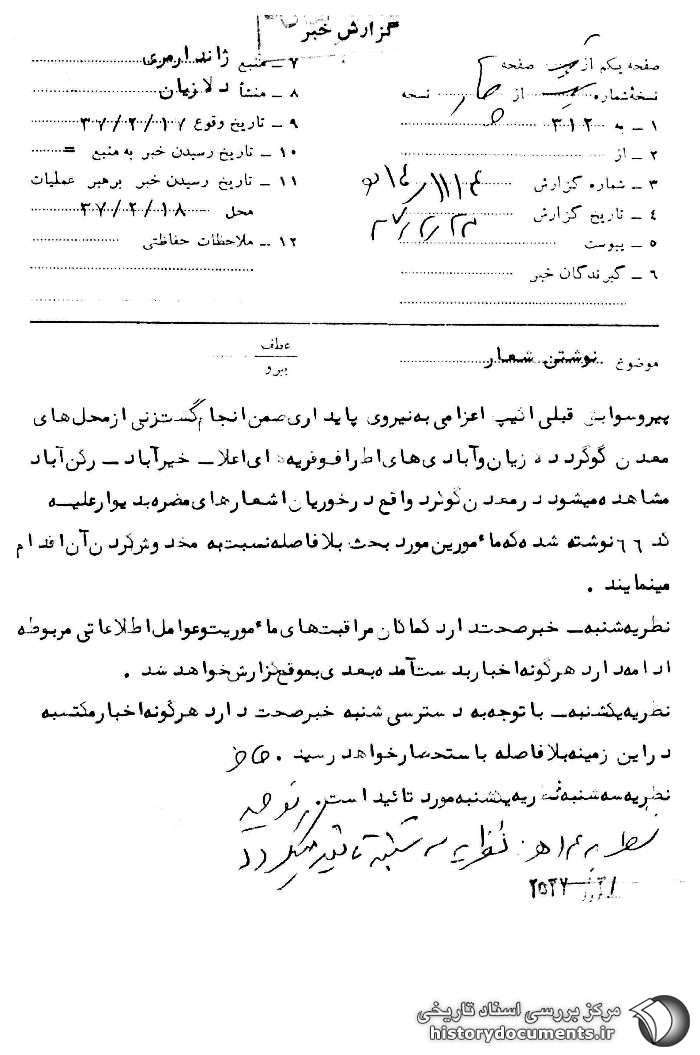 گزارش خبر
صفحه یکم از یک صفحه
نسخهٔ شماره یک از چهار نسخه
۱ ـ به ۳۱۲
۲ ـ از
۳ ـ شماره گزارش
۴ ـ تاریخ گزارش
۵ ـ پیوست
۶ ـ گیرندگان خبر
۷ ـ منبع ژاندارمری
۸ ـ منشأ دلازیان
۹ ـ تاریخ وقوع ۳۷/۲/۱۷
۱۰ ـ تاریخ رسیدن خبر به منبع =
۱۱ ـ تاریخ رسیدن خبر برهبر عملیات
محل ۳۷/۲/۱۸
۱۲ ـ ملاحظات حفاظتی
موضوع نوشتن شعار
عطف
پیرو
پیروسوابق قبلی اکیپ اعزامی به نیروی پایداری ضمن انجام گشت زنی از محل های
معدن گوگرد دلازیان و آبادی های اطراف و قریه های اعلا ـ خیرآباد ـ رکن آباد
مشاهده میشود در معدن گوگرد واقع در خوریان اشعارهای مضره بدیوار علیه
کد ۶۶ نوشته شده که مأمورین مورد بحث بلافاصله نسبت به مخدوش کردن آن اقدام
مینمایند .
نظریه شنبه ـ خبر صحت دارد کماکان مراقبت های مأموریت و عوامل اطلاعاتی مربوطه
ادامه دارد هرگونه اخبار بدست آمده بعدی بموقع گزارش خواهد شد .
نظریه یکشنبه ـ با توجه به دسترسی شنبه خبر صحت دارد هرگونه اخبار مکتسبه
در این زمینه بلافاصله باستحضار خواهد رسید .
نظریه سه شنبه نظریه یکشنبه مورد تائید است .
نظریه سه شنبه تائید میگردد
مرکز بررسی اسناد تاریخی
historydocuments.ir